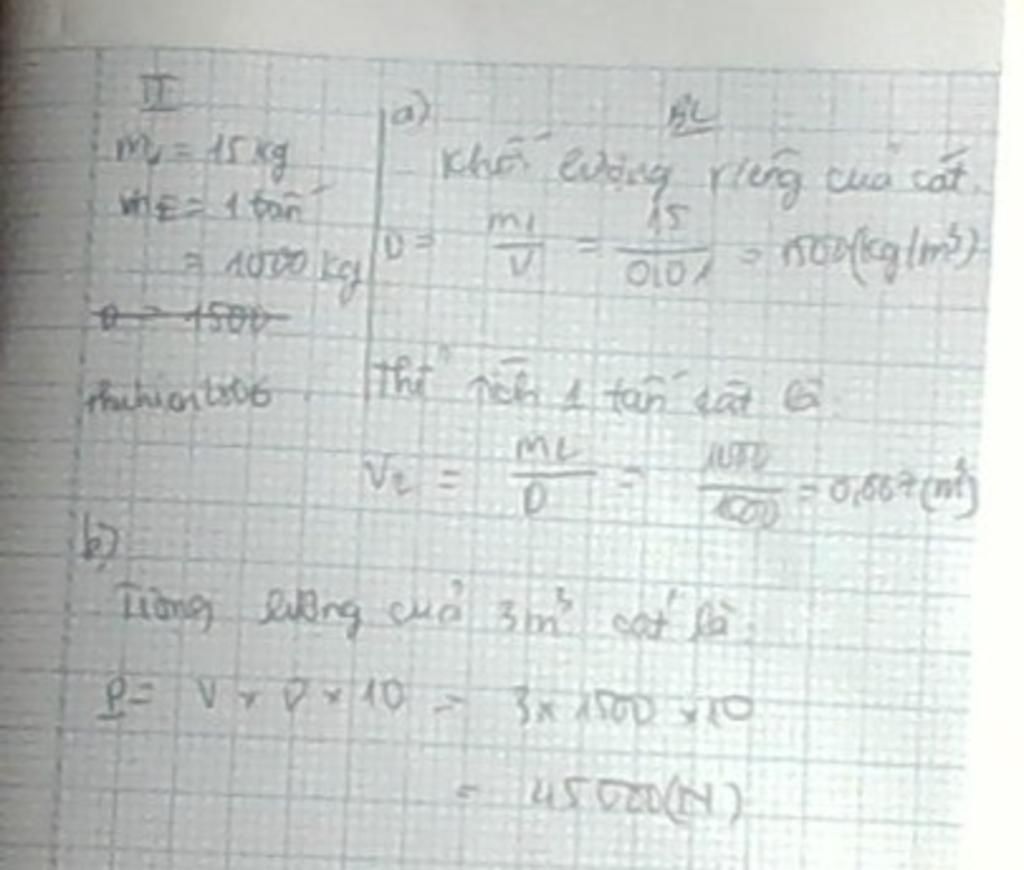 II
m₁ = 15 kg
m₂ = 1 tấn
= 1000 kg
D = 1500
thuhien2006
a)
BL
Khối lượng riêng của cát
D = m₁/V = 15/0,01 = 1500 (kg/m³)
Thể tích 1 tấn cát là
V₂ = m₂/D = 1000/1500 = 0,667 (m³)
b)
Trọng lượng của 3m³ cát là:
P = V × D × 10 = 3 × 1500 × 10
= 45000 (N)